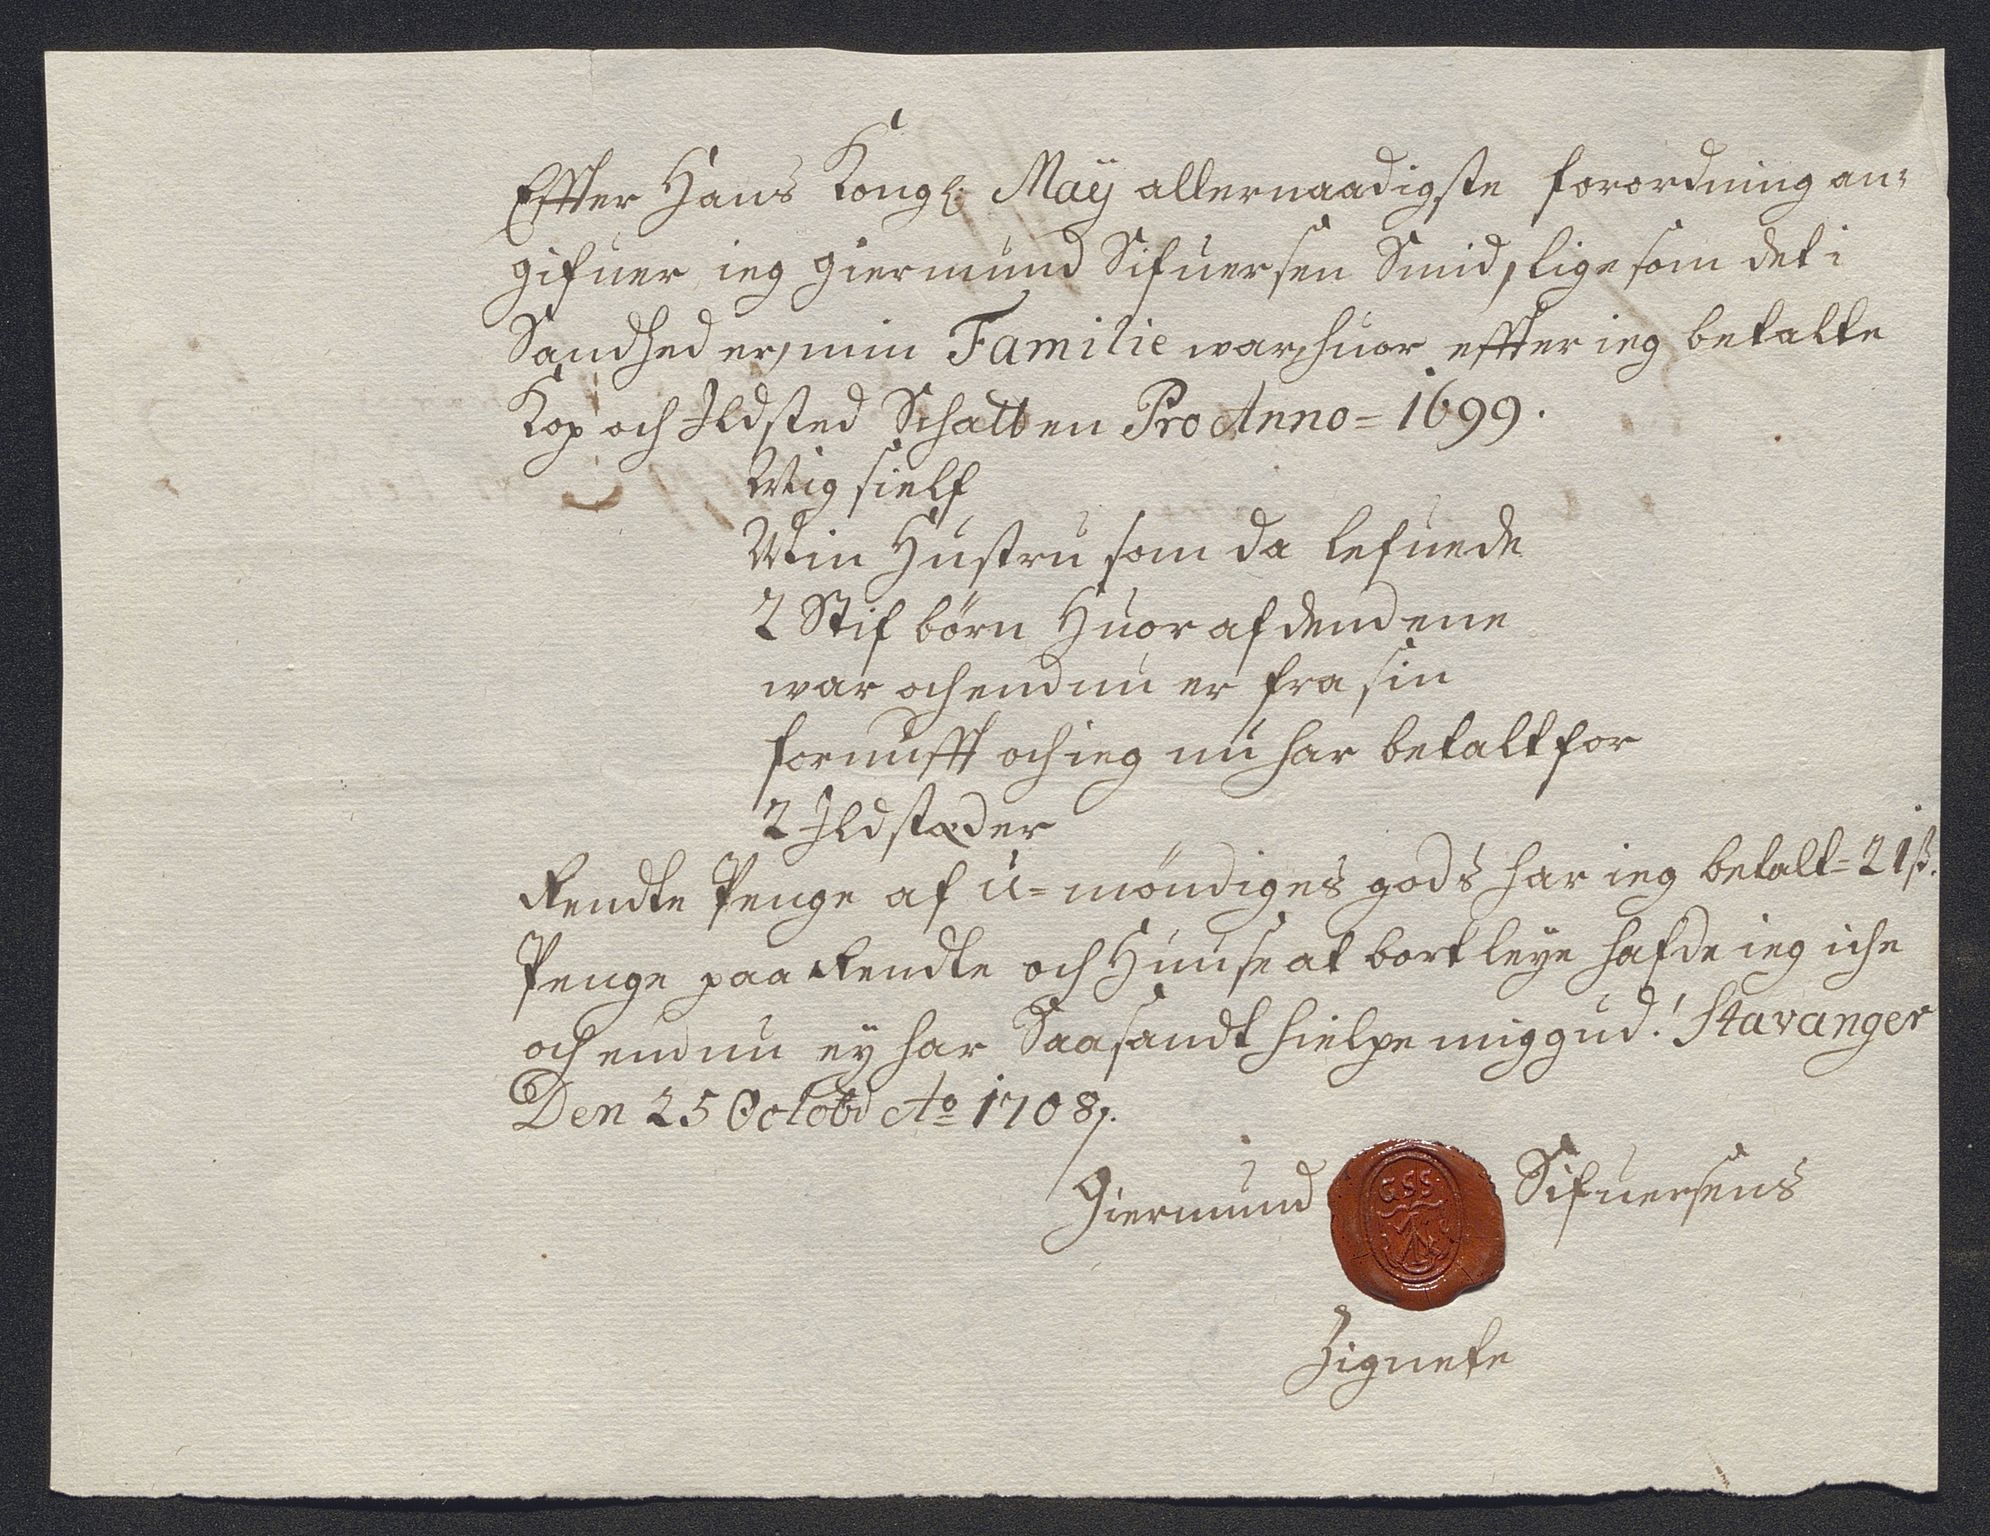 Effter Hans Kongl: Maÿ allernaadigste forordning an=
gifuer ieg Giermund Sifuersen Smid, ligesom det i
Sandhed er, min Familie war, huor effter ieg betalte
Kop och Ildsted Schatten Pro Anno = 1699.
Mig sielf
Min Hustru som da lefuede
2 Stif børn Huor af dend ene
war och endnu er fra sin
fornufft och ieg nu har betalt for
2 Ildstæder
Rendte Penge af u=möndiges gods har ieg betalt = 21 ß.
Penge paa Rendte och Huuse at bortleye hafde ieg iche
och endnu ey har Saa sandt hielpe mig gud! Stavanger
Den 25 Octobr Ao 1708.
Giermund Sifuersens
GSS
Zignete